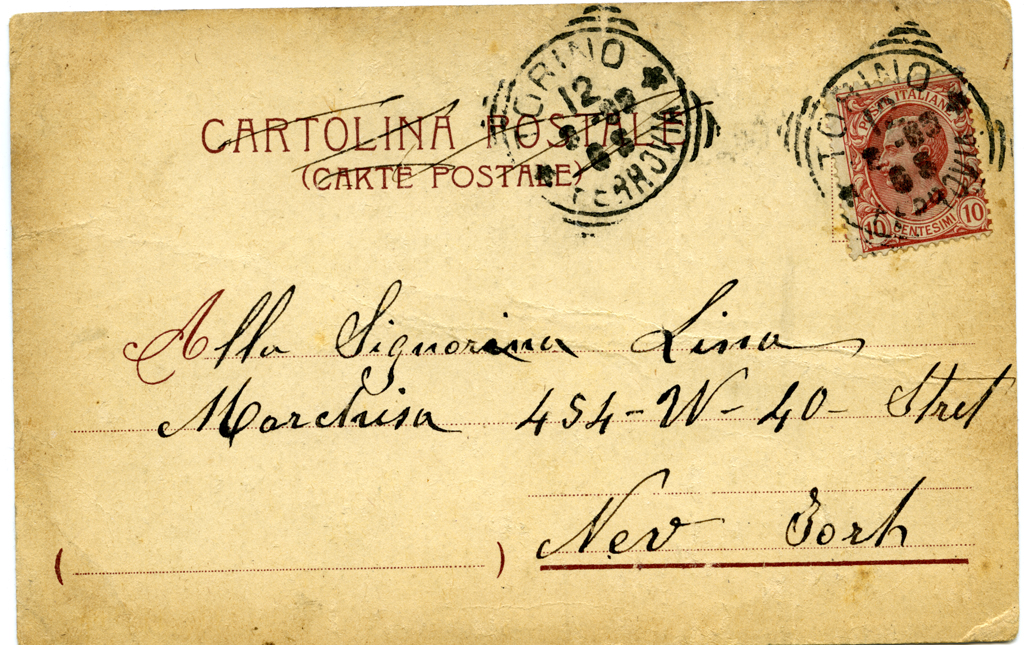 CARTOLINA POSTALE
(CARTE POSTALE)
TORINO
12
FERROVIA
TORINO
FERROVIA
POSTE ITALIANE
10 CENTESIMI 10
Alla Signorina Lina
Marchisa 454-W-40- Stret
Nev Yorh
( )